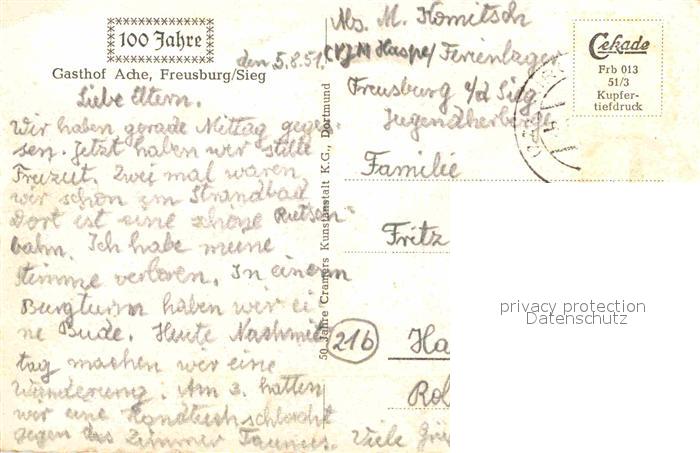 100 Jahre
Gasthof Ache, Freusburg/Sieg
den 5.8.51.
Liebe Eltern.
Wir haben gerade Mittag geges-
sen. Jetzt haben wir stille
Freizeit. Zwei mal waren
wir schon im Strandbad
Dort ist eine schöne Rutsch-
bahn. Ich habe meine
Stimme verloren. In einem
Burgturm haben wir ei-
ne Bude. Heute Nachmit
tag machen wir eine
Wanderung. Am 3. hatten
wir eine Handtuchschlacht
gegen das Zimmer Taunus. Viele Grü
50 Jahre Cramers Kunstanstalt K.G., Dortmund
Abs. M. Komitsch
CVJM Haspe/ Ferienlager
Freusburg a/d Sieg
Jugendherberge
Cekade
Frb 013
51/3
Kupfer-
tiefdruck
Familie
Fritz
21b
Ha
Rol
privacy protection
Datenschutz